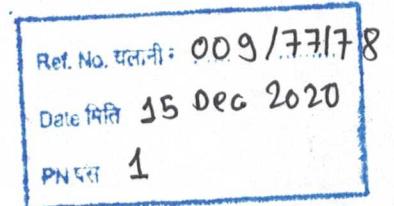 Ref. No. चला.नी: 009/77/78
Date मिति 15 Dec 2020
PN पस 1